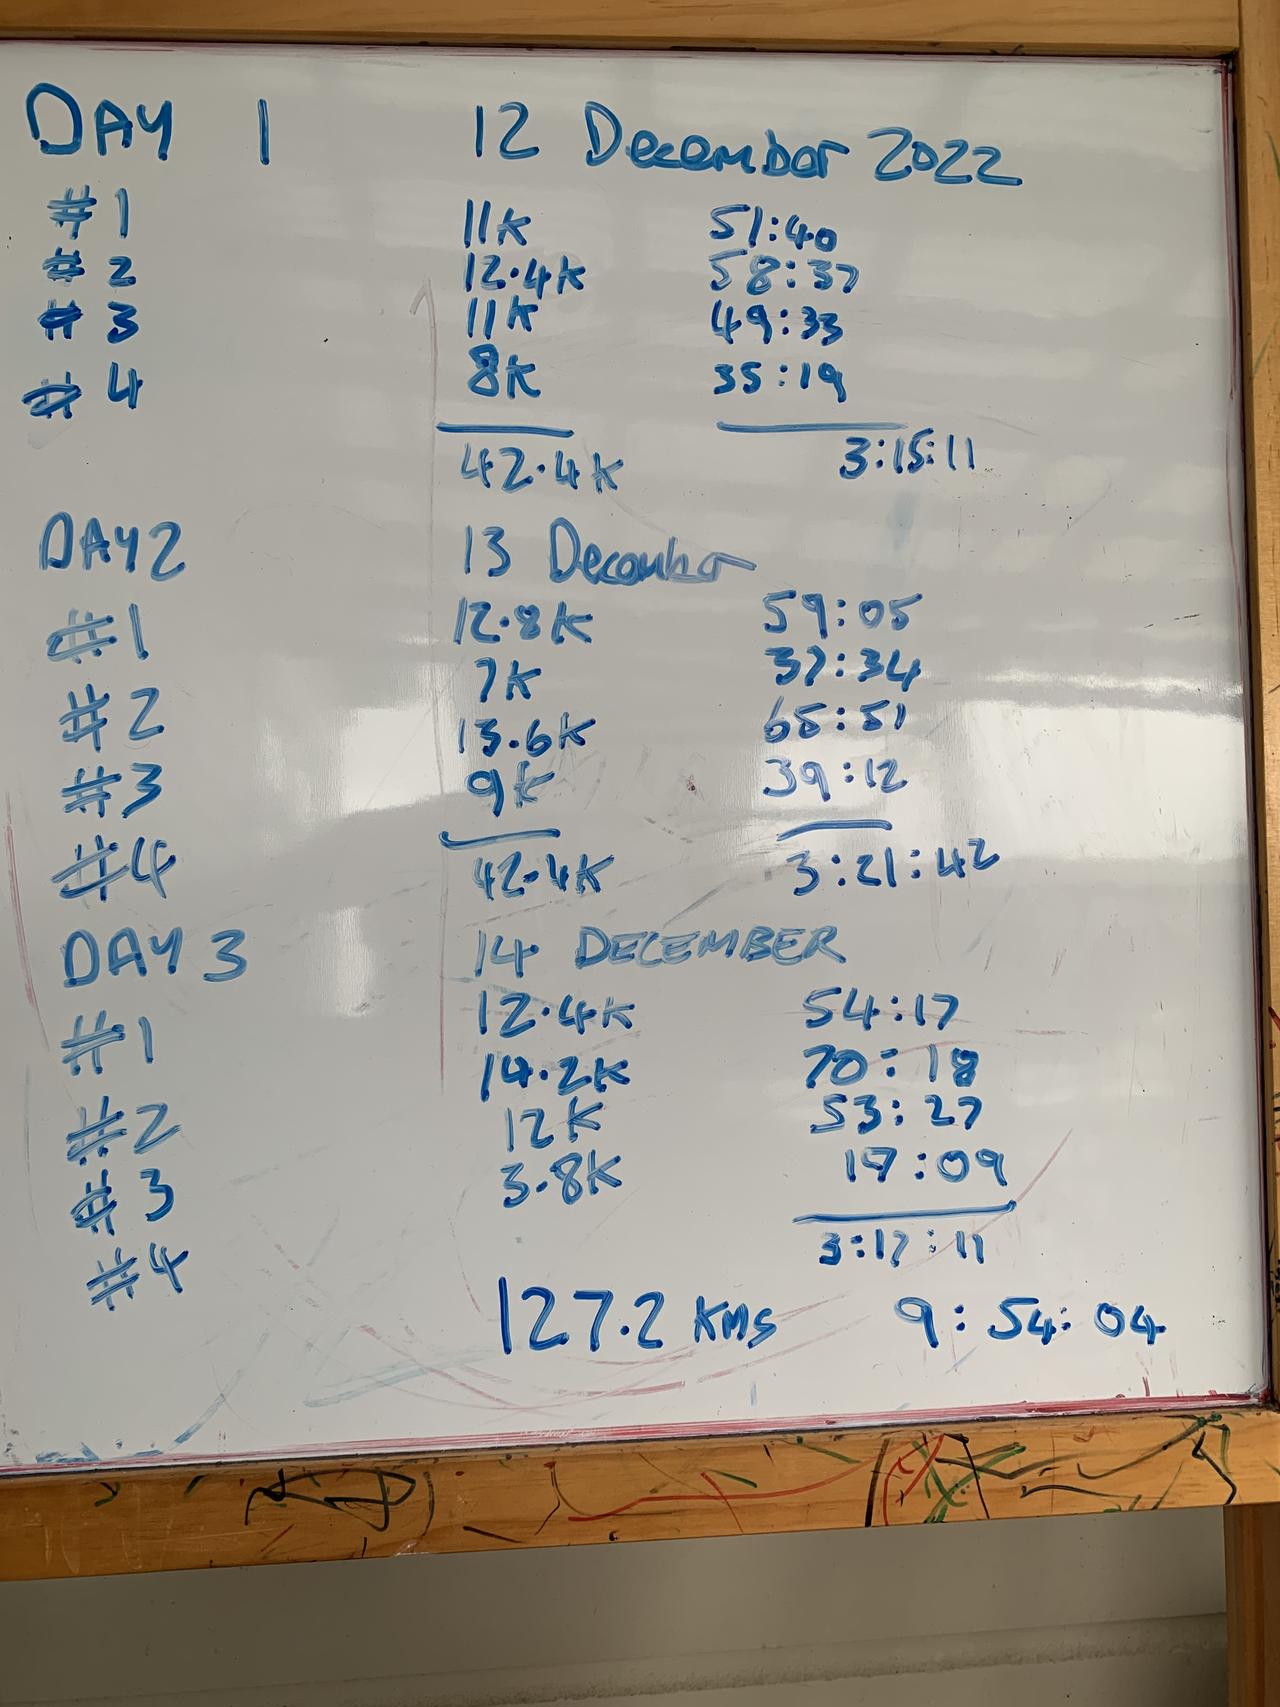 DAY 1 12 December 2022
#1 11K 51:40
#2 12.4K 58:37
#3 11K 49:33
#4 8K 35:19
42.4K 3:15:11
DAY 2 13 December
#1 12.8K 59:05
#2 7K 37:34
#3 13.6K 65:51
#4 9K 39:12
42.4K 3:21:42
DAY 3 14 DECEMBER
#1 12.4K 54:17
#2 14.2K 70:18
#3 12K 53:27
#4 3.8K 19:09
3:17:11
127.2 KMS 9:54:04